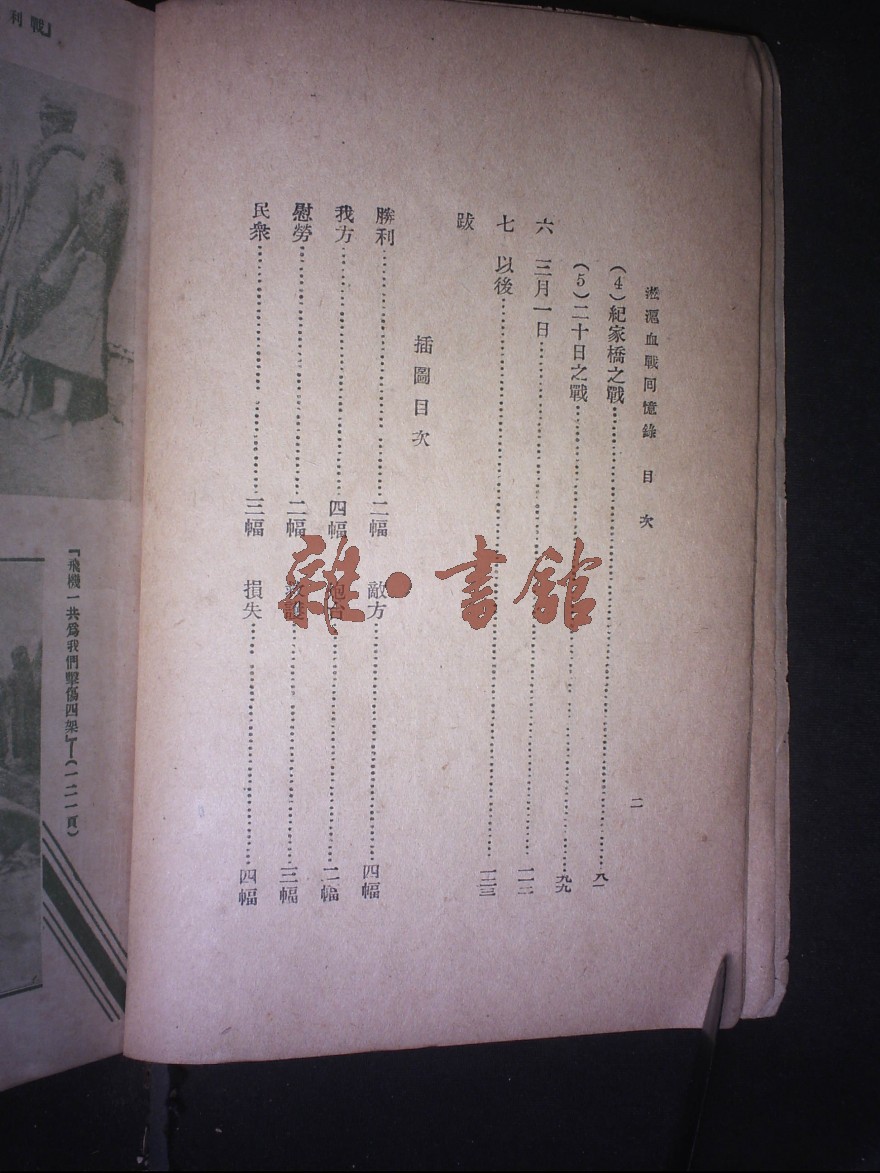 淞滬血戰回憶錄 目次 二
(4)紀家橋之戰……八一
(5)二十日之戰……九九
六 三月一日……一一二
七 以後……一二三
跋
插圖目次
勝利……二幅 敵方……四幅
我方……四幅 砲台……二幅
慰勞……二幅 救護……三幅
民衆……三幅 損失……四幅
雜·書館
利戰』
『飛機一共爲我們擊傷四架』—(一二一頁)